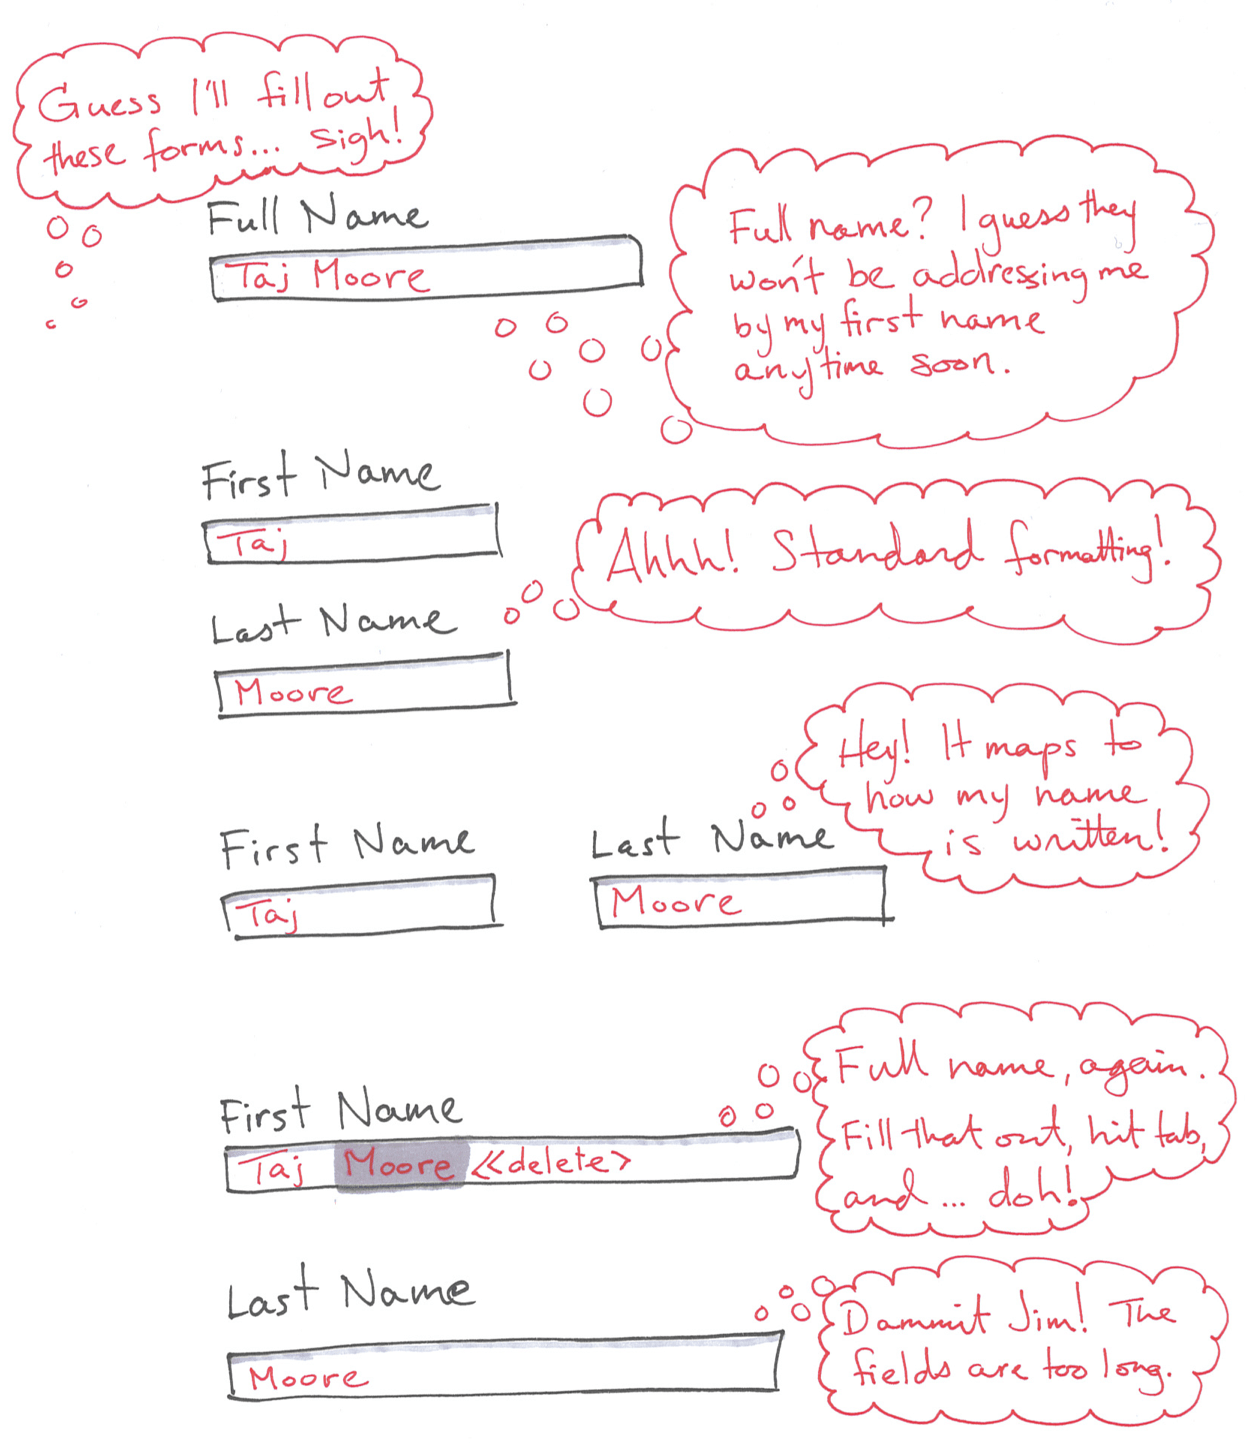 Guess I'll fill out
these forms... sigh!
Full Name
Taj Moore
Full name? I guess they
won't be addressing me
by my first name
anytime soon.
First Name
Taj
Ahhh! Standard formatting!
Last Name
Moore
Hey! It maps to
how my name
is written!
First Name
Taj
Last Name
Moore
Full name, again.
Fill that out, hit tab,
and ... doh!
First Name
Taj Moore <<delete>
Last Name
Moore
Dammit Jim! The
fields are too long.